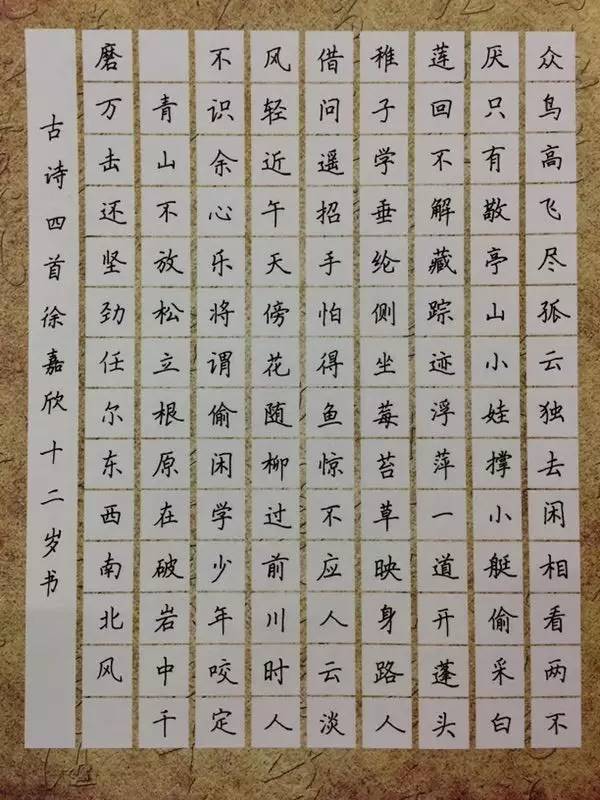 众鸟高飞尽孤云独去闲相看两不
厌只有敬亭山小娃撑小艇偷采白
莲回不解藏踪迹浮萍一道开蓬头
稚子学垂纶侧坐莓苔草映身路人
借问遥招手怕得鱼惊不应人云淡
风轻近午天傍花随柳过前川时人
不识余心乐将谓偷闲学少年咬定
青山不放松立根原在破岩中千
磨万击还坚劲任尔东西南北风
古诗四首徐嘉欣十二岁书